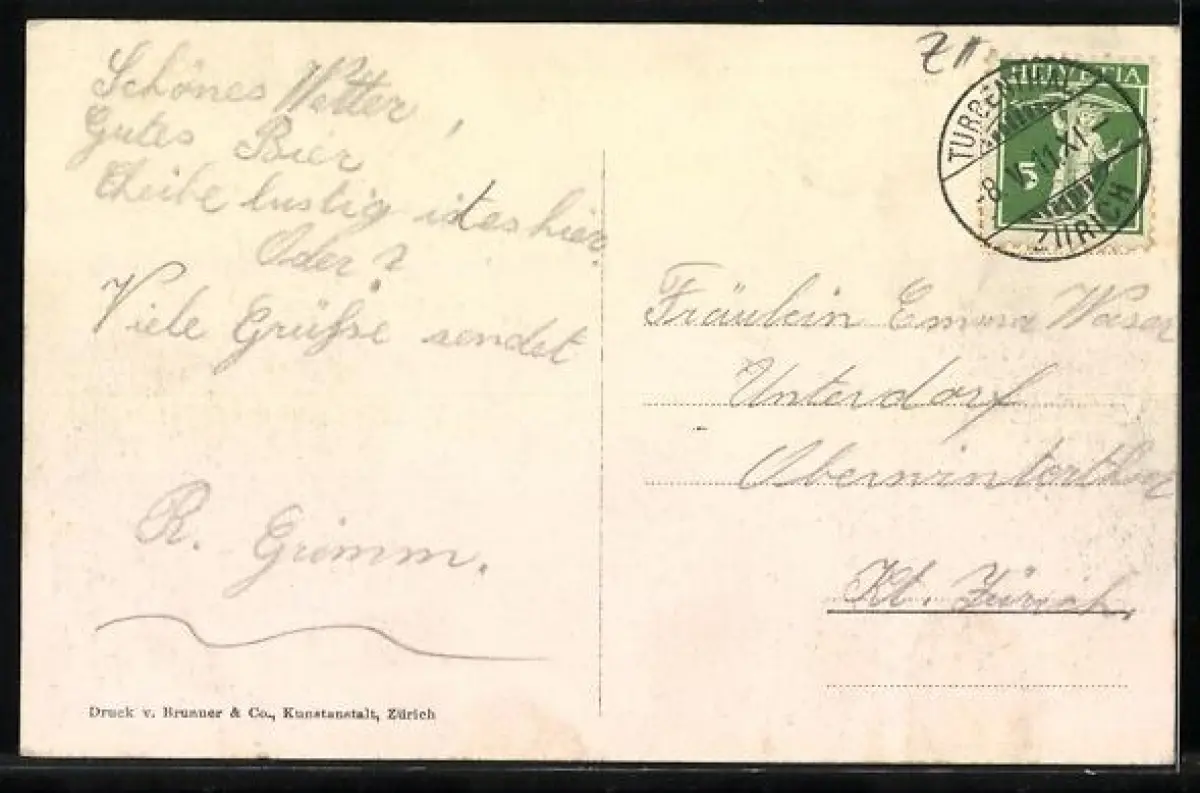 Schönes Wetter,
Gutes Bier
Cheibe lustig ist es hier.
Oder?
Viele Grüsse sendet
R. Grimm.
Druck v. Brunner & Co., Kunstanstalt, Zürich
HELVETIA
5
TURBENTHAL
-8.V.11.XI-
ZÜRICH
Fräulein Emma Waser
Unterdorf
Oberwinterthur
Kt. Zürich.